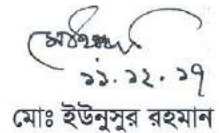 ১১.১২.১৭
মোঃ ইউনুসুর রহমান